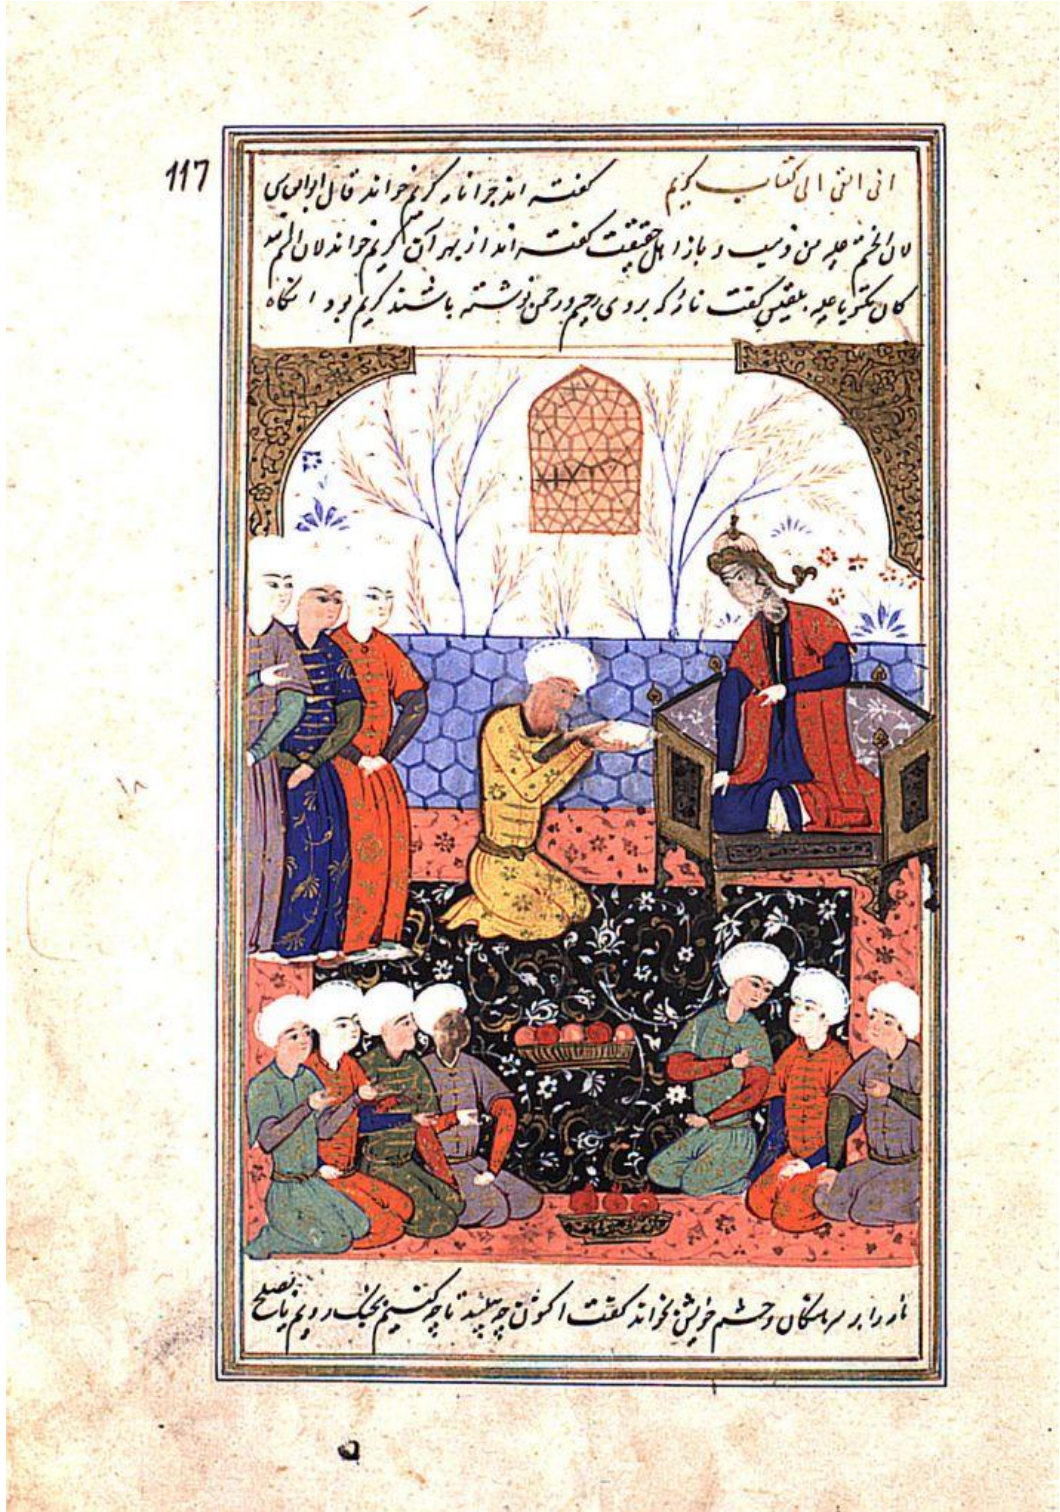 117
انی القی الی کتاب کریم گفته اند چرا نامه کریم خواند قال ابن عباس
لان الختم علیه من و باز اهل حقیقت گفته اند از بهر آن کریم خواند لان
کان مکتوبا علیه بلقیس گفت نامه که بروی رحیم و رحمن نوشته باشند کریم بود آنگاه
نامه را بر سرهنگان و حشم خویش بخواند گفت اکنون چه بینید تا چه کنیم بجنگ رویم یا بصلح